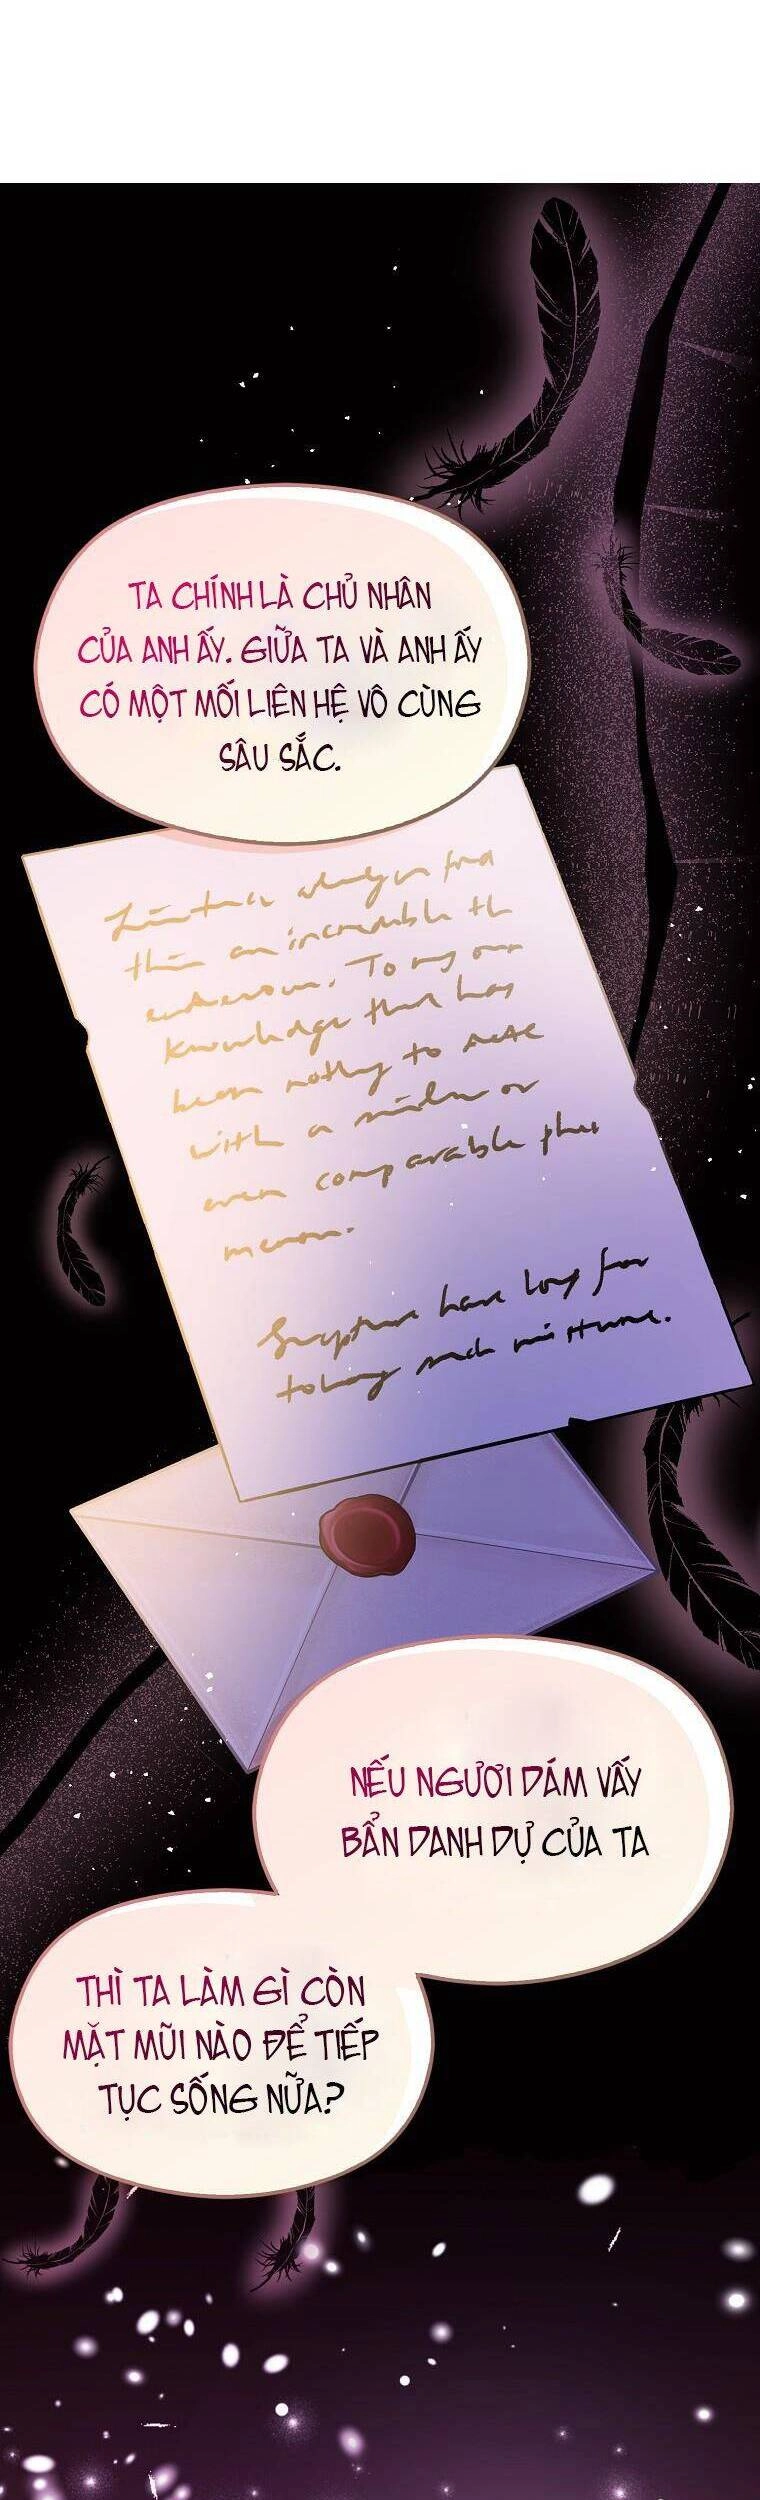 TA CHÍNH LÀ CHỦ NHÂN
CỦA ANH ẤY. GIỮA TA VÀ ANH ẤY
CÓ MỘT MỐI LIÊN HỆ VÔ CÙNG
SÂU SẮC.
find
this an incredible th
. To my own
knowledge that has
been nothing to
with a similar or
even comparable phe
menon.
Scripture have long for
such mixture.
NẾU NGƯƠI DÁM VẤY
BẨN DANH DỰ CỦA TA
THÌ TA LÀM GÌ CÒN
MẶT MŨI NÀO ĐỂ TIẾP
TỤC SỐNG NỮA?